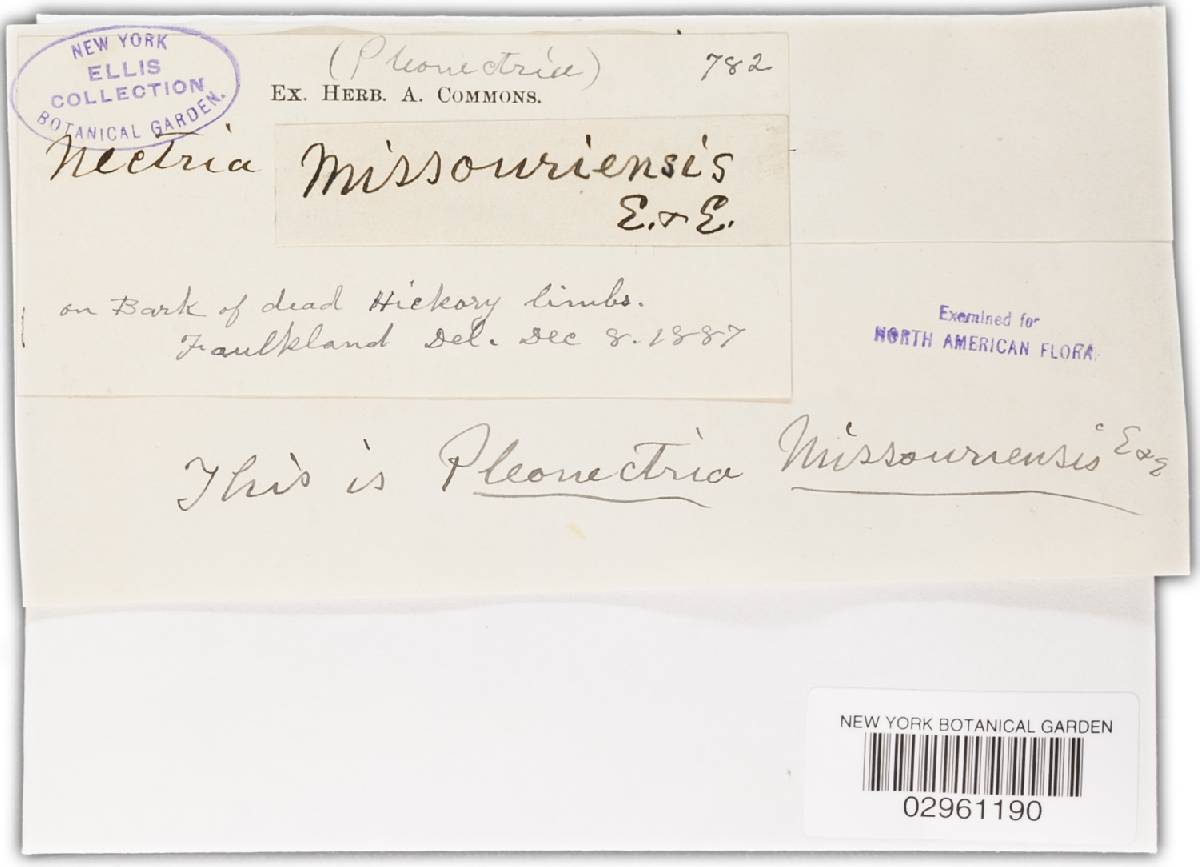 NEW YORK
ELLIS
COLLECTION
BOTANICAL GARDEN.
(Pleonectria) 782
EX. HERB. A. COMMONS.
Nectria Missouriensis
E. & E.
on Bark of dead Hickory limbs.
Faulkland Del. Dec 8. 1887
Examined for
NORTH AMERICAN FLORA.
This is Pleonectria Missouriensis E & E
NEW YORK BOTANICAL GARDEN
02961190